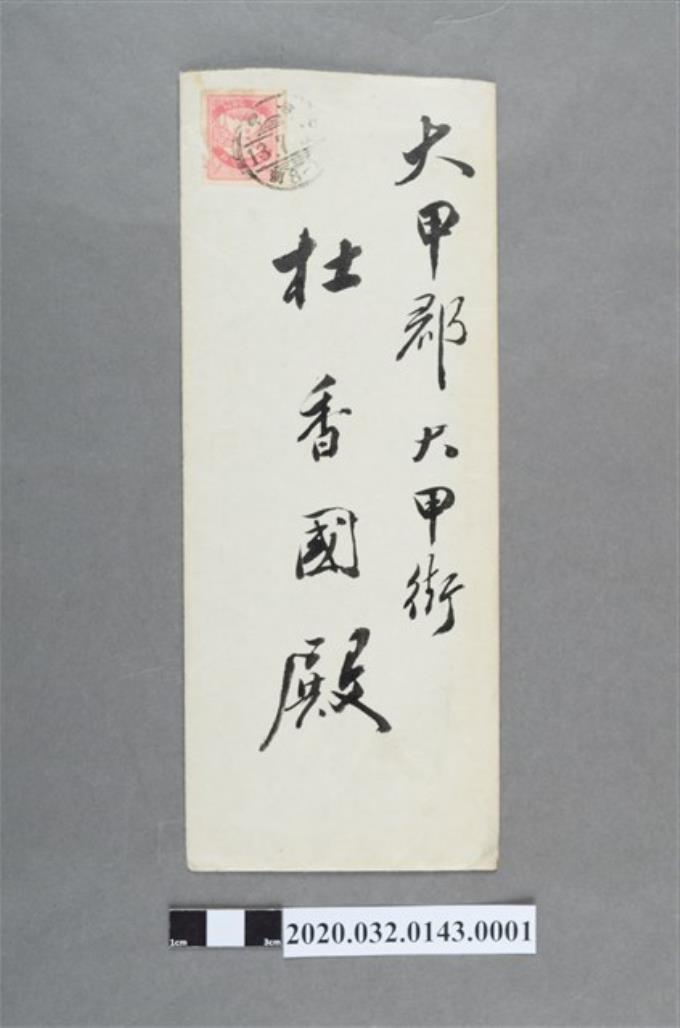 大甲郡大甲街
杜香國殿
13.7
1cm
3cm
2020.032.0143.0001